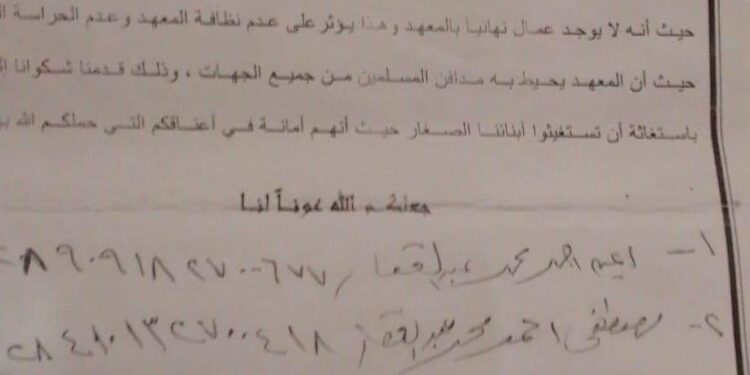 حيث أنه لا يوجد عمال نهائيا بالمعهد وهذا يؤثر على عدم نظافة المعهد وعدم الحراسة
حيث أن المعهد يحيط به مدافن المسلمين من جميع الجهات ، وذلك قدمنا شكوانا
باستغاثة أن تستغيثوا أبنائنا الصغار حيث أنهم أمانة في أعناقكم التي حماكم الله
جعلكم الله عوناً لنا
١- احمد محمد
٢- مصطفى احمد محمد